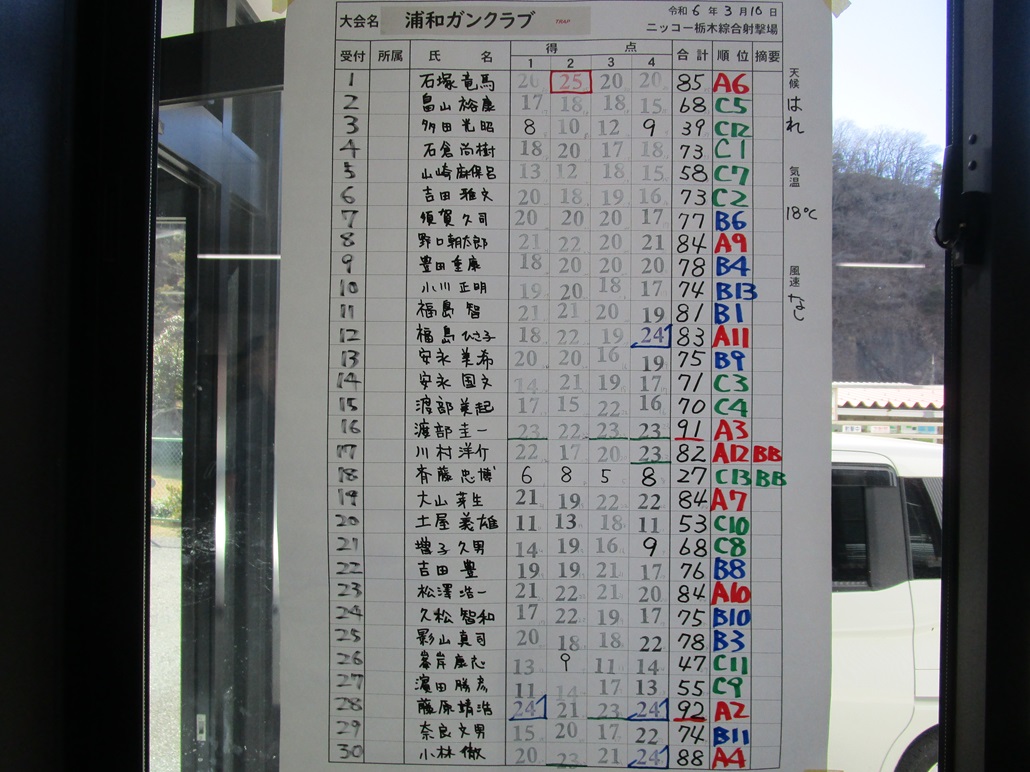 令和 6 年 3 月 10 日
大会名 浦和ガンクラブ TRAP ニッコー栃木綜合射撃場
受付 所属 氏 名 得 点 合計 順位 摘要
1 2 3 4
1 石塚竜馬 20 25 20 20 85 A6
2 畠山裕慶 17 18 18 15 68 C5
3 多田光昭 8 10 12 9 39 C12
4 石倉尚樹 18 20 17 18 73 C1
5 山崎麻保呂 13 12 18 15 58 C7
6 吉田雅文 20 18 19 16 73 C2
7 須賀久司 20 20 20 17 77 B6
8 野口朝太郎 21 22 20 21 84 A9
9 豊田重康 18 20 20 20 78 B4
10 小川正明 19 20 18 17 74 B13
11 福島智 21 21 20 19 81 B1
12 福島ひさ子 18 22 19 24 83 A11
13 安永美希 20 20 16 19 75 B9
14 安永国文 14 21 19 17 71 C3
15 渡部美起 17 15 22 16 70 C4
16 渡部圭一 23 22 23 23 91 A3
17 川村洋介 22 17 20 23 82 A12 BB
18 斉藤忠博 6 8 5 8 27 C13 BB
19 大山芽生 21 19 22 22 84 A7
20 土屋義雄 11 13 18 11 53 C10
21 増子久男 14 19 16 9 68 C8
22 吉田豊 19 19 21 17 76 B8
23 松澤浩一 21 22 21 20 84 A10
24 久松智和 17 22 19 17 75 B10
25 影山真司 20 18 18 22 78 B3
26 峯岸 13 9 11 14 47 C11
27 濱田勝彦 11 14 17 13 55 C9
28 藤原靖浩 24 21 23 24 92 A2
29 奈良文男 15 20 17 22 74 B11
30 小林徹 20 23 21 24 88 A4
天候 はれ
気温 18℃
風速 なし